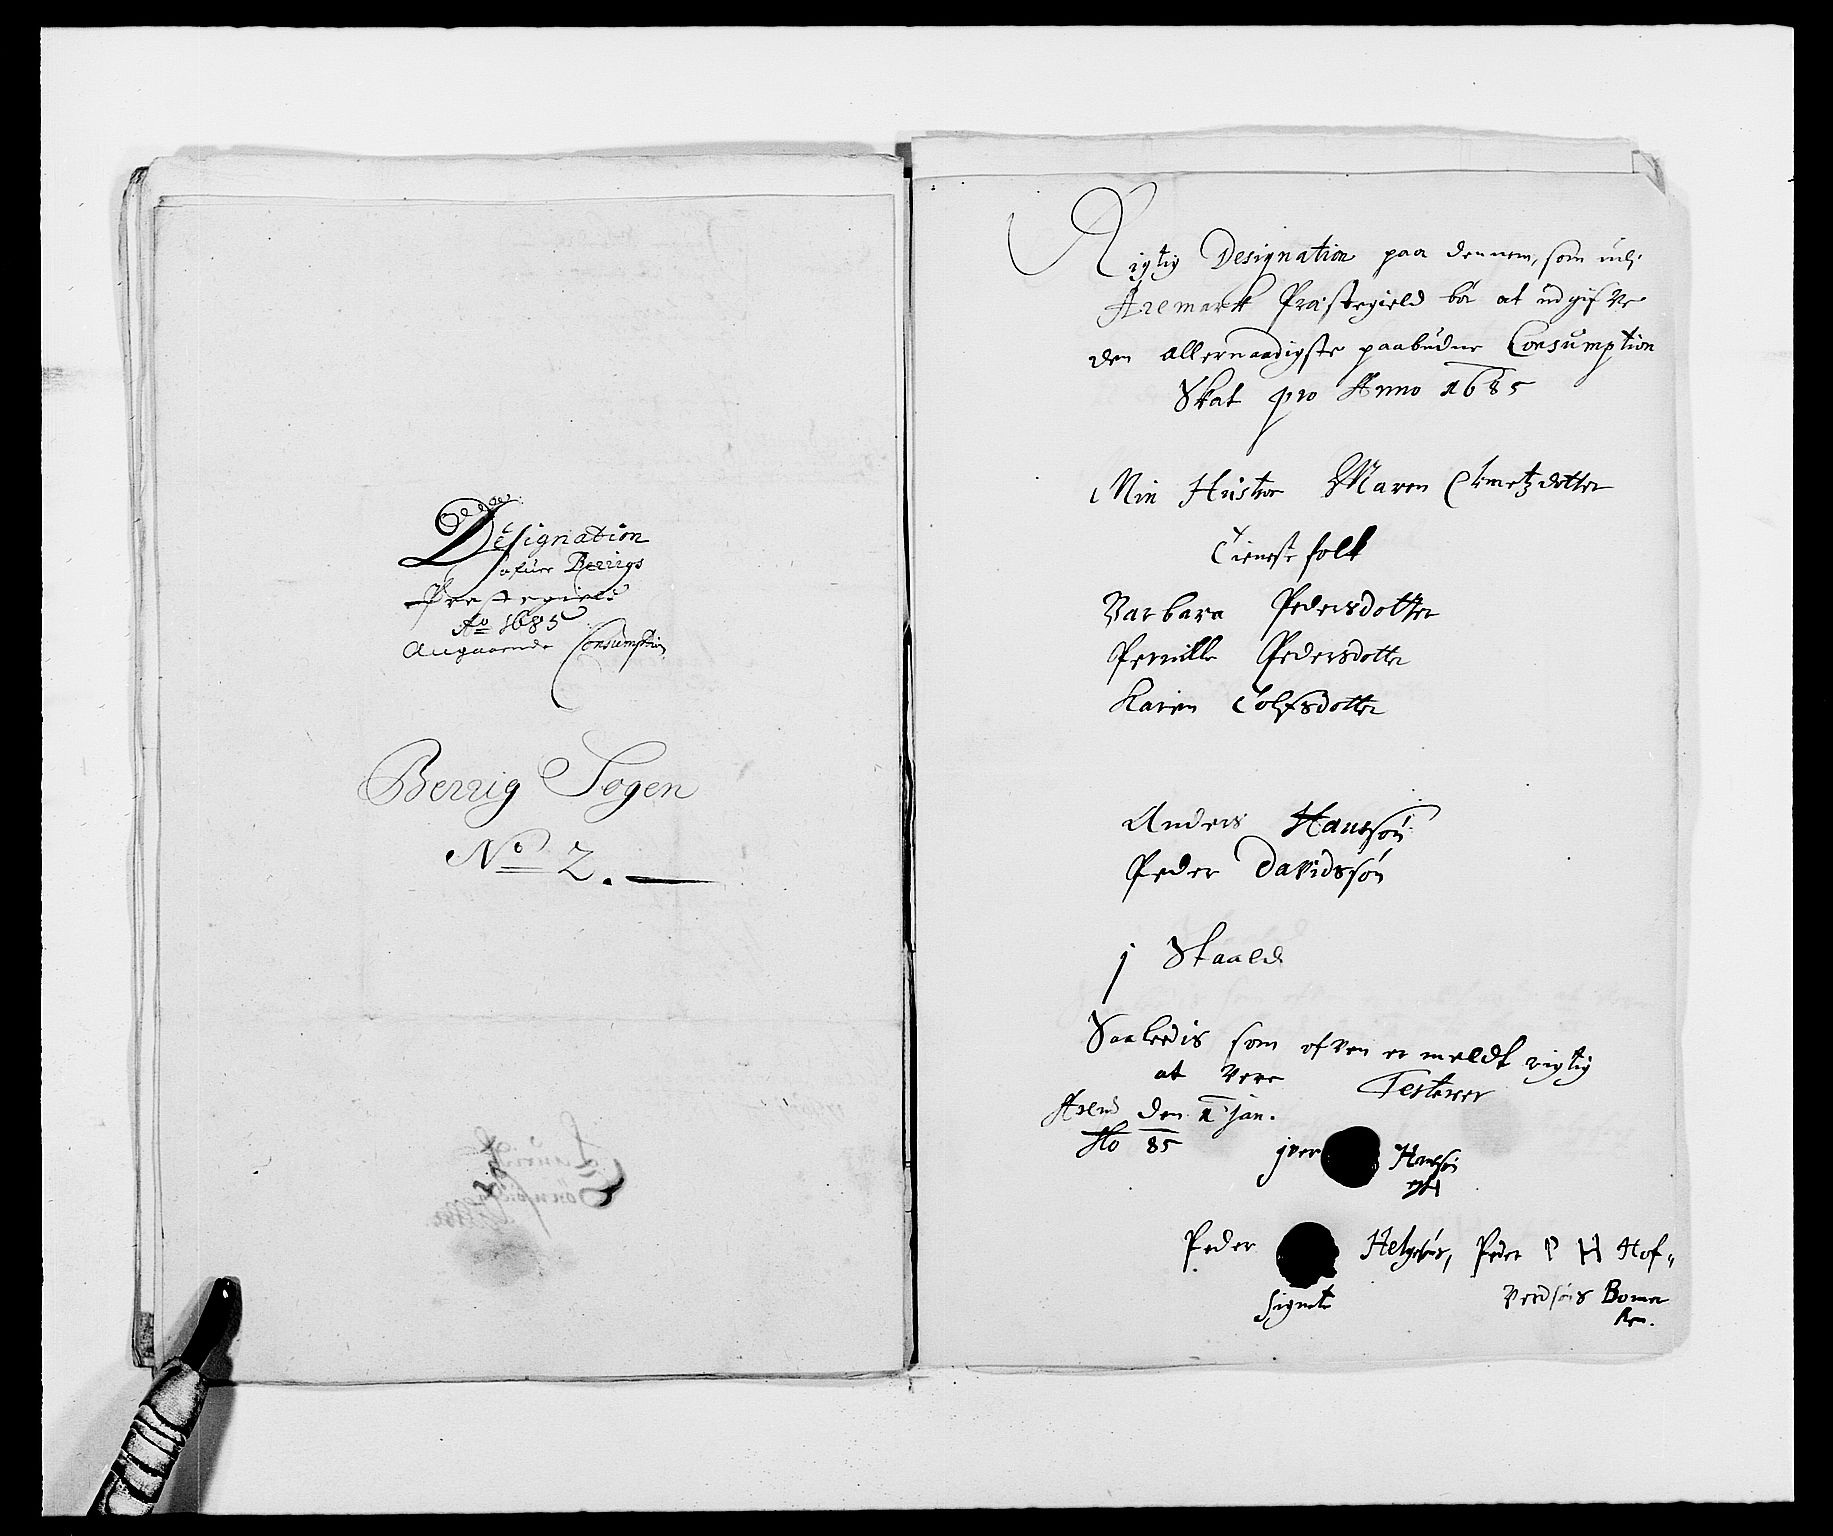 Designation
ofuer Berrigs
Præstegield
Ao 1685
Angaaende Consumption
Berrig Sogen
No 2.
Rigtig Designation paa dennem, som udj
Aremark Præstegield bør at udgifve
den allernaadigste paabudne Consumption
Skat pro Anno 1685
Min Hustro Maren Clemetzdotter
Tieneste folk
Barbara Pedersdotter
Pernille Pedersdotter
Karen Tolfsdotter
Anders Hanssøn
Peder Davidssøn
j Skaall
Saaledis som ofven er meldt rigtig
at vere Testerer
Arem den 1 Jan.
Ao 85
jver Hanssøn
Peder Helgesøn, Peder P H Hof-
signete
vedsøns Bomer
ken.